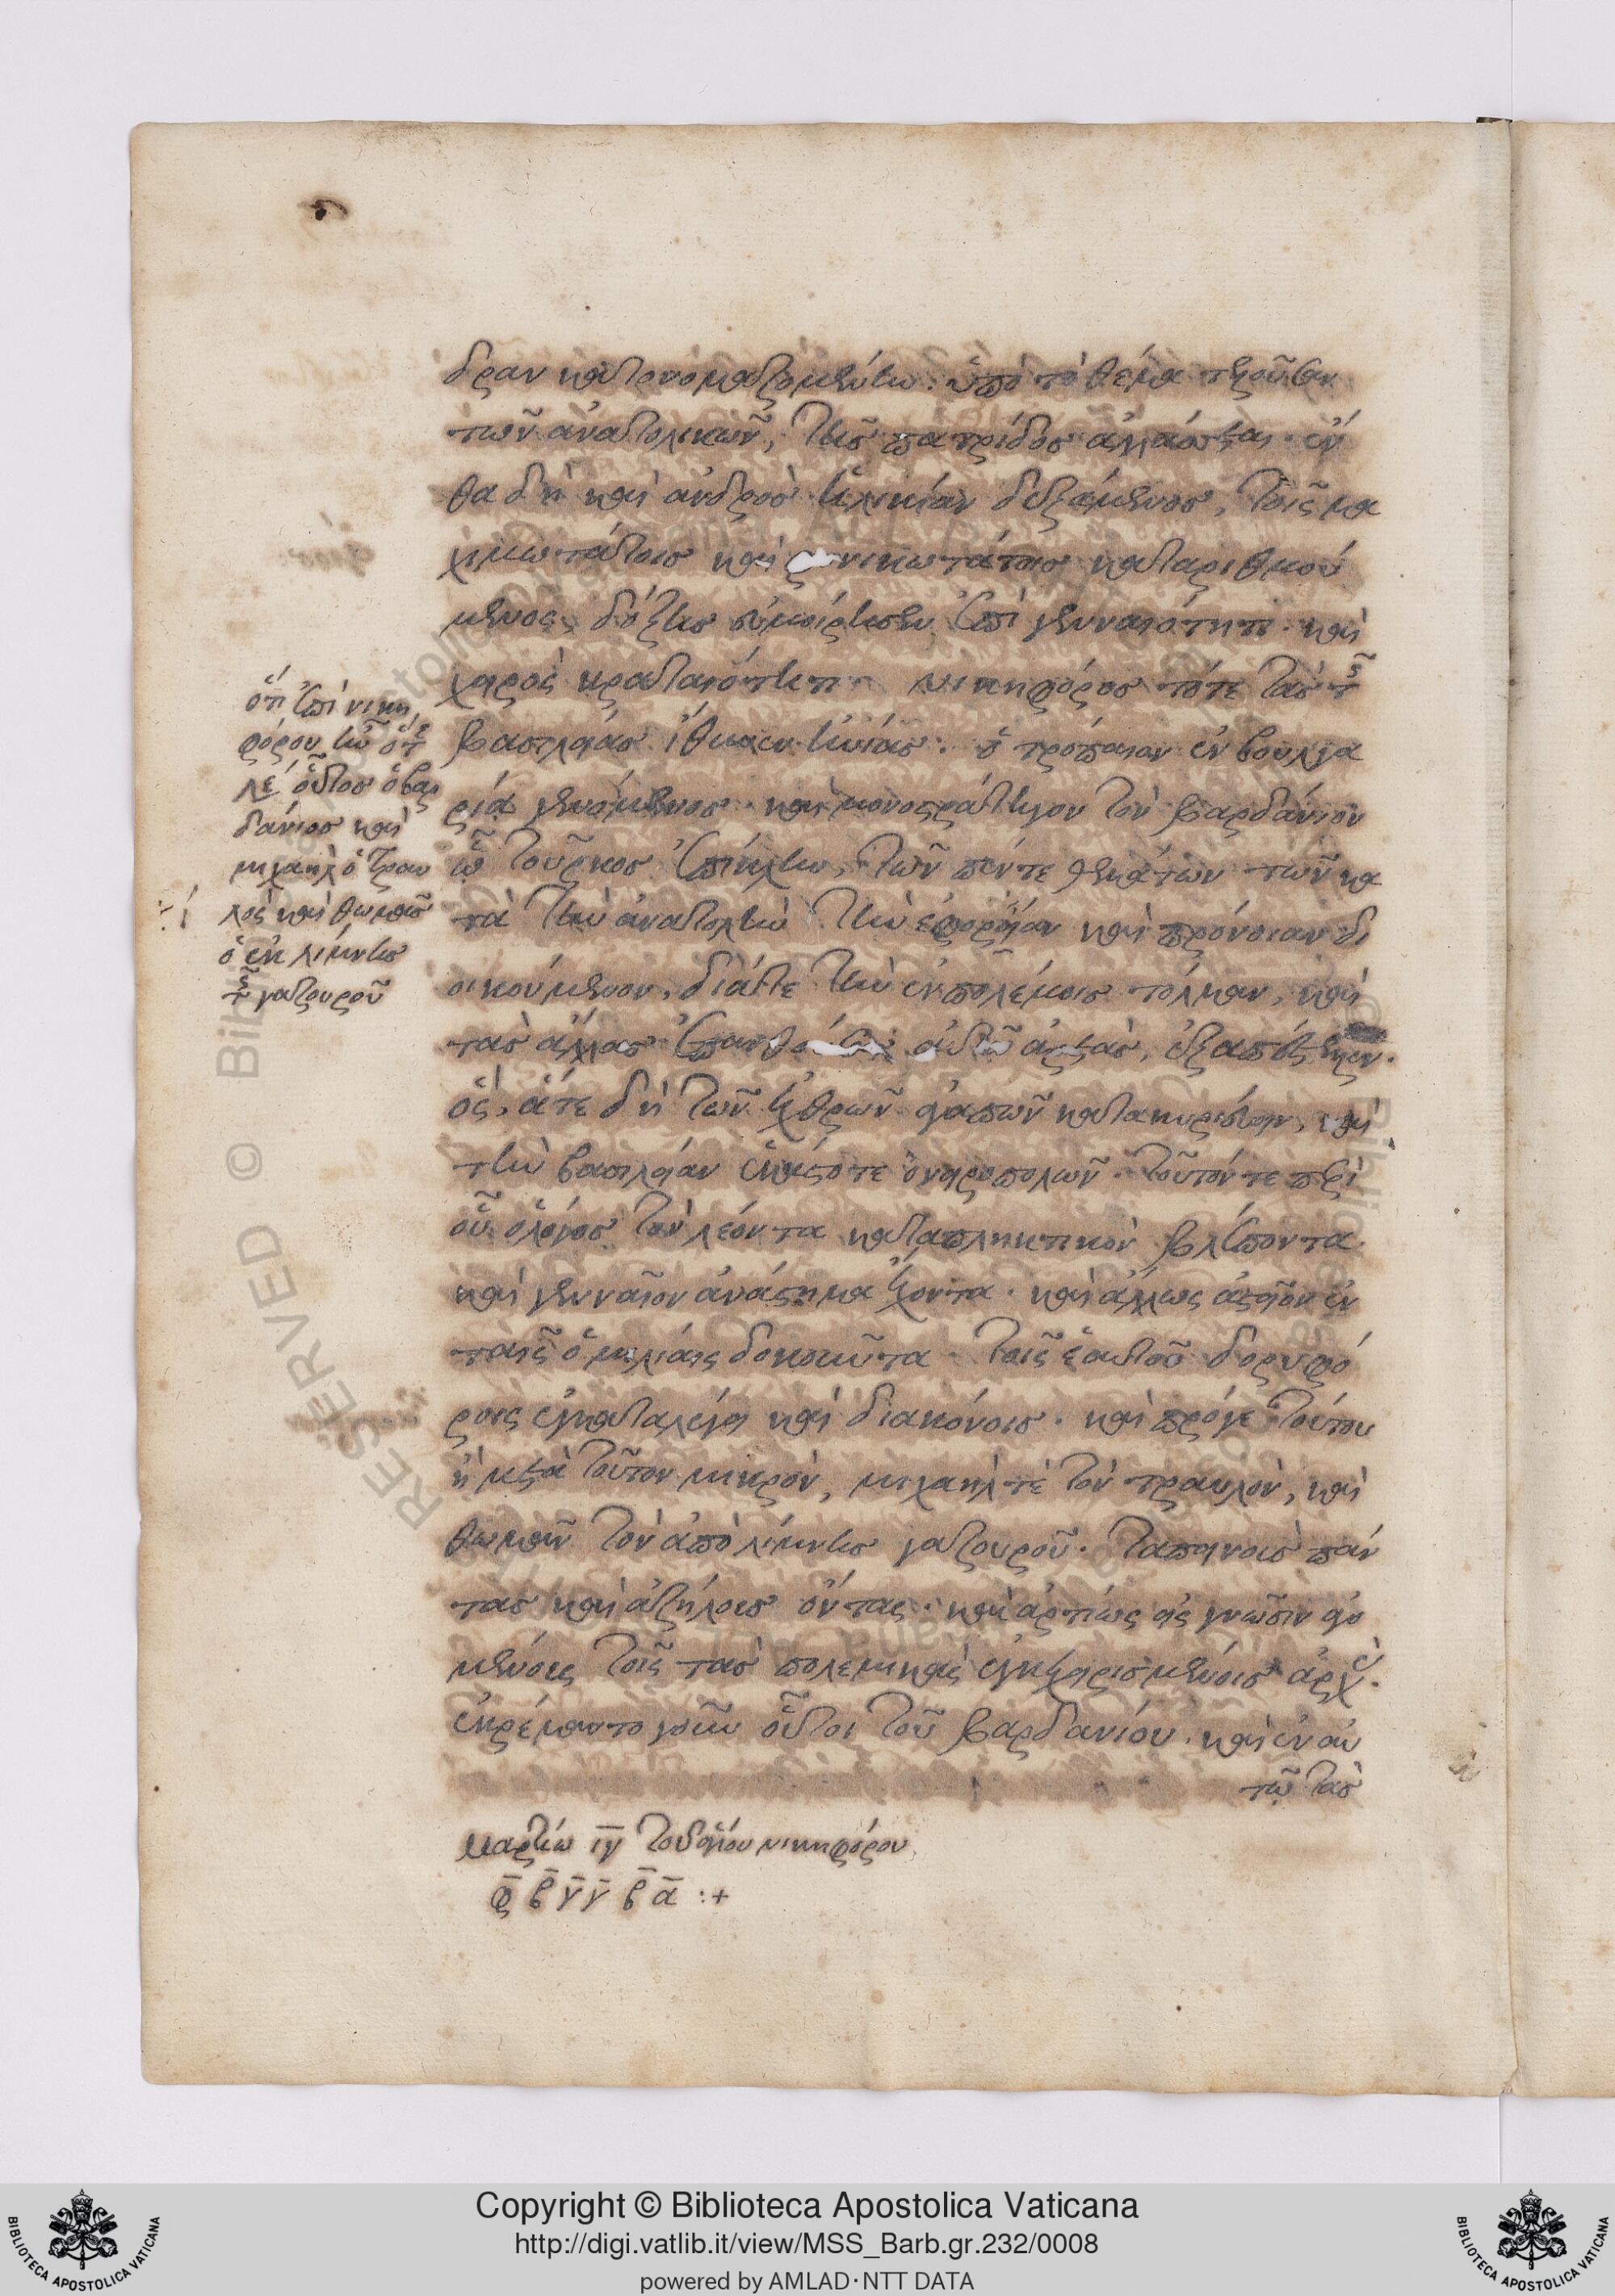 δραν κατονομαζομένην. ὑπὸ τὸ θέμα τελοῦσαν
τῶν ἀνατολικῶν, τῆς πατρίδος ἀλλάσσεται. ἔν
θα δὴ καὶ ἀνδρὸς ἡλικίαν δεξάμενος, τοῖς μα
χιμωτάτοις καὶ νικωτάτοις καταριθμού
μενος, δόξης ἐπὶ γενναιότητι. καὶ
χειρὸς κραταιότητι νικηφόρος τότε τὰς τῆς
βασιλείας ἴθυνεν ἡνίας. ὁ τρόπαιον ἐν βουλγα
ρίᾳ γενόμενος. καὶ μονοστράτηγον τὸν βαρδάνιον
ᾧ τοῦρκος ἐπίκλην, τῶν πέντε θεμάτων τῶν κα
τὰ τὴν ἀνατολὴν τὴν ἐφορείαν καὶ πρόνοιαν δι
οικούμενον, διά τε τὴν ἐν πολέμοις τόλμαν, καὶ
τὰς ἄλλας αὐτῷ ἀρετὰς, ἐξαπέστειλεν.
ὃς, ἅτε δὴ τῶν ἐχθρῶν κατακυριεύειν, καὶ
τὴν βασιλείαν ἑκάστοτε ὀνειροπολῶν. τοῦτόν τε περὶ
οὗ ὁ λόγος τὸν λέοντα καταπληκτικὸν βλέποντα.
καὶ γενναῖον ἀνάστημα ἔχοντα. καὶ ἄλλως ἀστεῖον ἐν
ταῖς ὁμιλίαις δοκοῦντα. τοῖς ἑαυτοῦ δορυφό
ροις ἐγκαταλέγει καὶ διακόνοις. καὶ πρό γε τούτου
ἢ μετὰ τοῦτον μικρὸν, μιχαήλ τε τὸν τραυλὸν, καὶ
θωμᾶν τὸν ἀπὸ λίμνης γαζουροῦ. ταπεινοὺς πάν
τας καὶ ἀζήλους ὄντας. καὶ ἀρτίως εἰς γνῶσιν ἀγο
μένους τοῖς τὰς πολεμικὰς ἐγκεχειρισμένοις ἀρχάς.
ἐκρέμαντο γοῦν οὗτοι τοῦ βαρδανίου. καὶ ἐν αὐ
τῷ τὰς
ὅτι ἐπὶ νικη
φόρου ἦν ὅ τε
λέ οὗτος ὁ βαρ
δάνιος καὶ
μιχαὴλ ὁ τραυ
λὸς καὶ θωμᾶς
ὁ ἐκ λίμνης
τῆς γαζουροῦ
μαρτίῳ ιγ τοῦ ἁγίου νικηφόρου
φ β γ γ β α :+
Copyright © Biblioteca Apostolica Vaticana
http://digi.vatlib.it/view/MSS_Barb.gr.232/0008
powered by AMLAD·NTT DATA
BIBLIOTECA APOSTOLICA VATICANA
BIBLIOTECA APOSTOLICA VATICANA